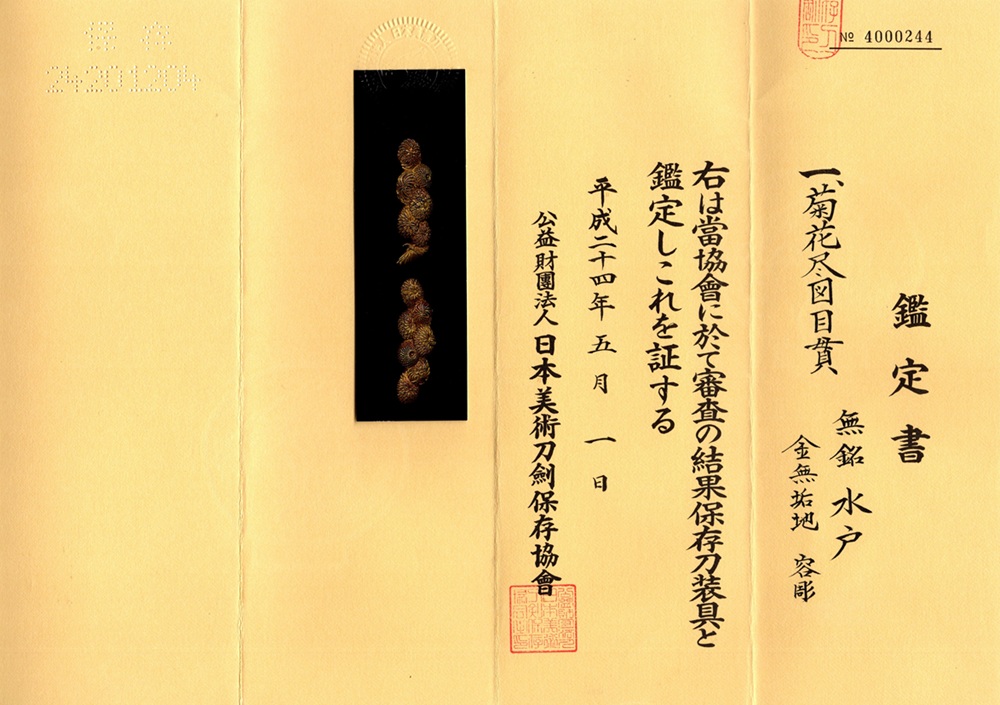 № 4000244
鑑定書
一、菊花尽図目貫
無銘 水戸
金無垢地 容彫
右は當協會に於て審査の結果保存刀装具と
鑑定しこれを証する
平成二十四年五月一日
公益財團法人日本美術刀劍保存協會
保存
24201204